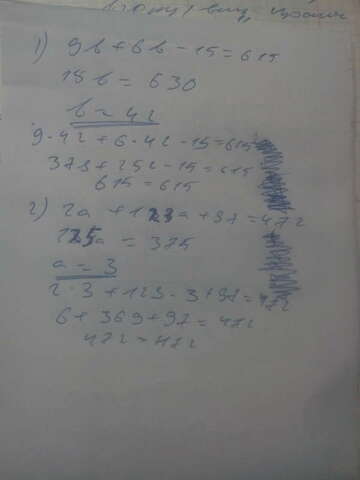 1) 9b + 6b - 15 = 615
15b = 630
b = 42
9·42 + 6·42 - 15 = 615
378 + 252 - 15 = 615
615 = 615
2) 2a + 123a + 97 = 472
125a = 375
a = 3
2·3 + 123·3 + 97 = 472
6 + 369 + 97 = 472
472 = 472